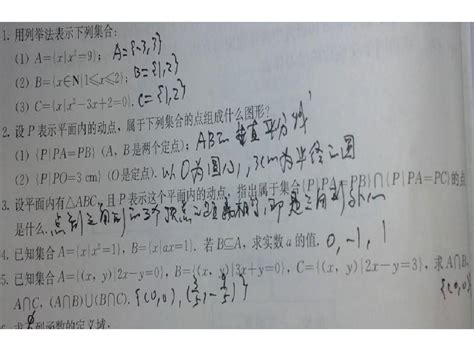 1. 用列举法表示下列集合:
(1) A={x|x²=9}; A={-3,3}
(2) B={x∈N|1≤x≤2}; B={1,2}
(3) C={x|x²-3x+2=0}. C={1,2}
2. 设P表示平面内的动点,属于下列集合的点组成什么图形?
(1) {P|PA=PB} (A, B是两个定点); AB的垂直平分线
(2) {P|PO=3 cm} (O是定点). 以O为圆心,3cm为半径的圆
3. 设平面内有△ABC,且P表示这个平面内的动点,指出属于集合{P|PA=PB}∩{P|PA=PC}的点
是什么. 点到三角形的三个顶点的距离相等,即是三角形外心
4. 已知集合A={x|x²=1}, B={x|ax=1}. 若B⊆A, 求实数a的值. 0, -1, 1
5. 已知集合A={(x, y)|2x-y=0}, B={(x, y)|3x+y=0}, C={(x, y)|2x-y=3}, 求A∩B,
A∩C, (A∩B)∪(B∩C). {(0,0), (3/5, -9/5)} {(0,0)}
列函数的定义域.